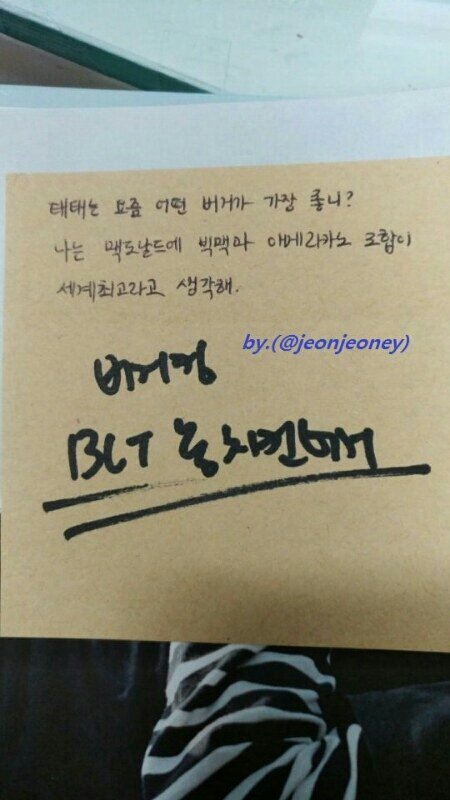 태태는 요즘 어떤 버거가 가장 좋니?
나는 맥도날드에 빅맥과 아메리카노 조합이
세계최고라고 생각해.
by.(@jeonjeoney)
버거킹
BLT 롱치킨버거